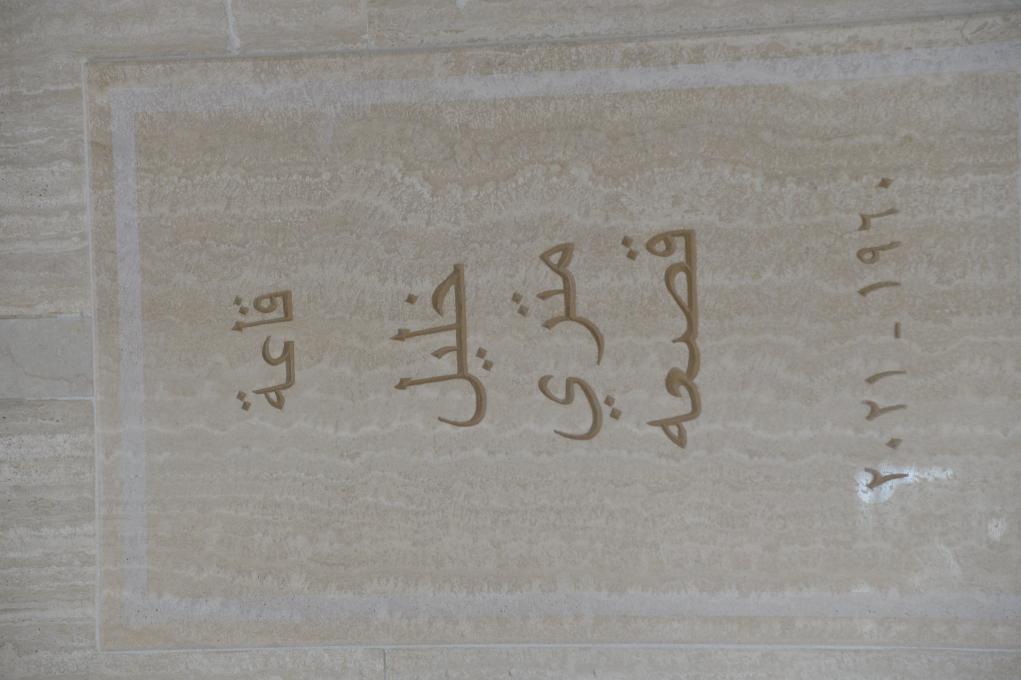 قاعة
خليل
متري
قصعه
١٩٦٠ - ٢٠٢١